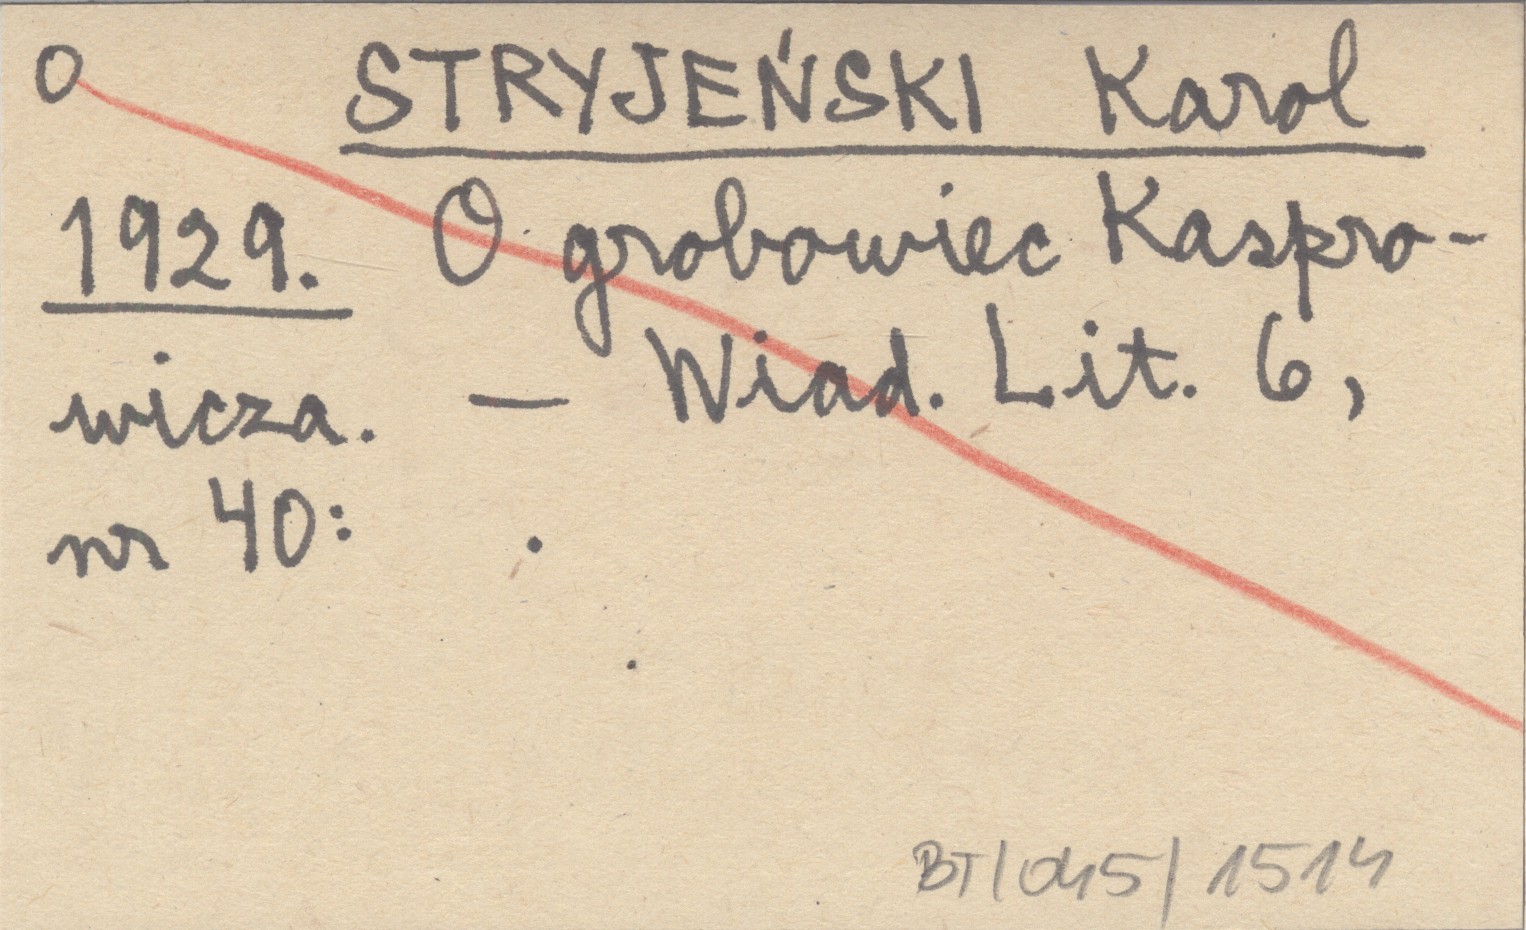 O STRYJEŃSKI Karol
1929. O grobowiec Kaspro-
wicza. — Wiad. Lit. 6,
nr 40: .
BT/045/1514